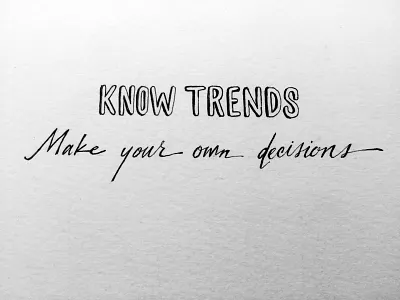 KNOW TRENDS
Make your own decisions